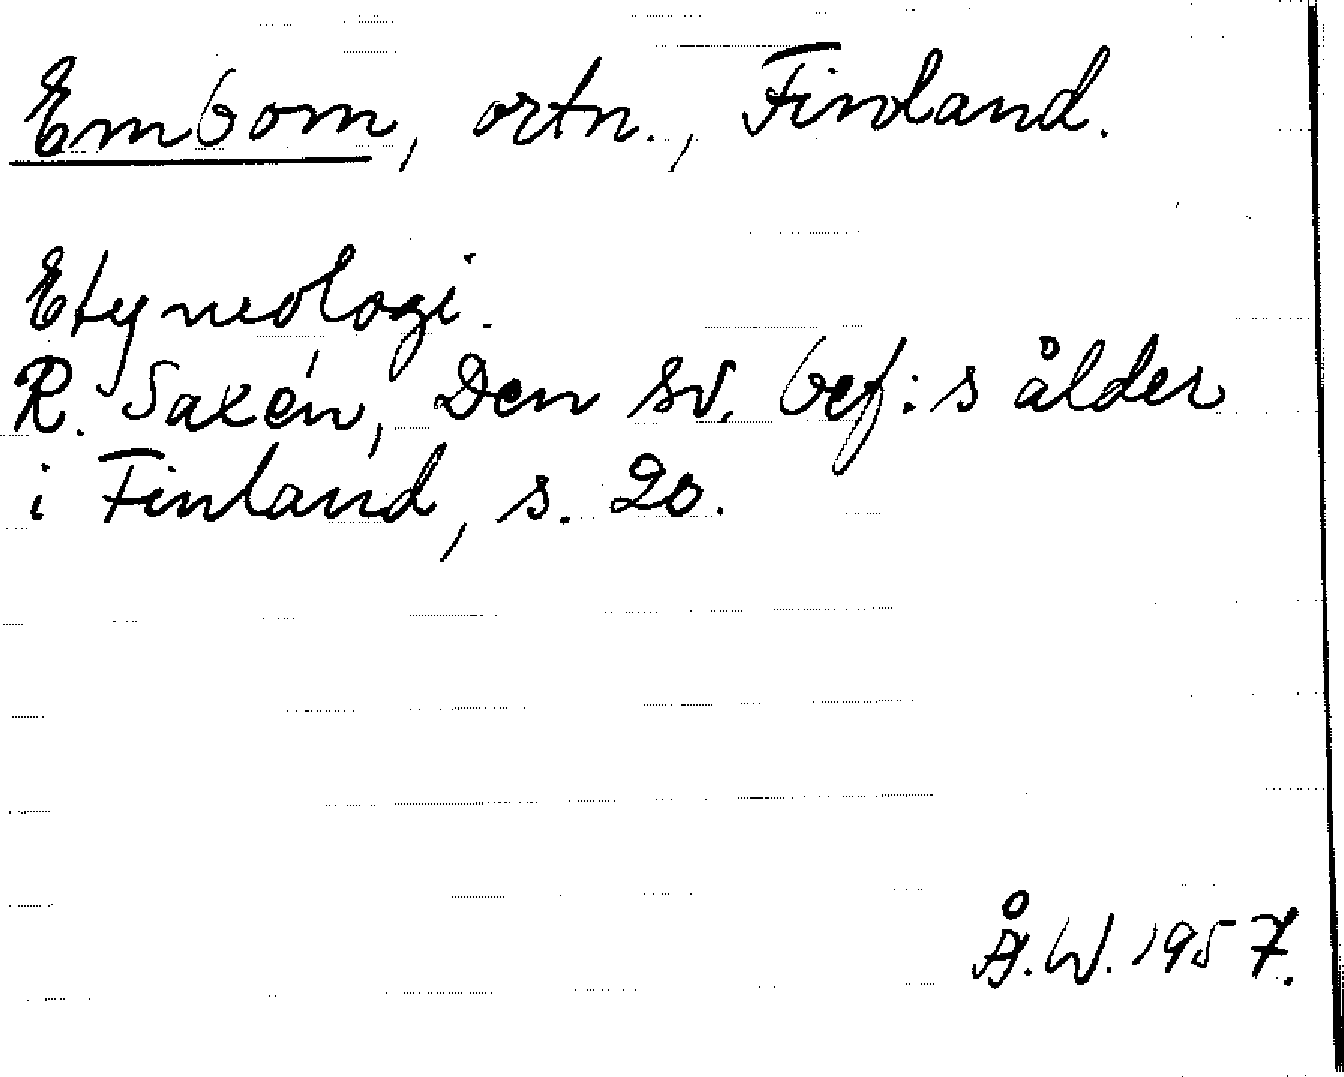 Embom, ortn., Finland.
Etymologi.
R. Saxén, Den sv. bef:s ålder
i Finland, s. 20.
Å.W. 1957.